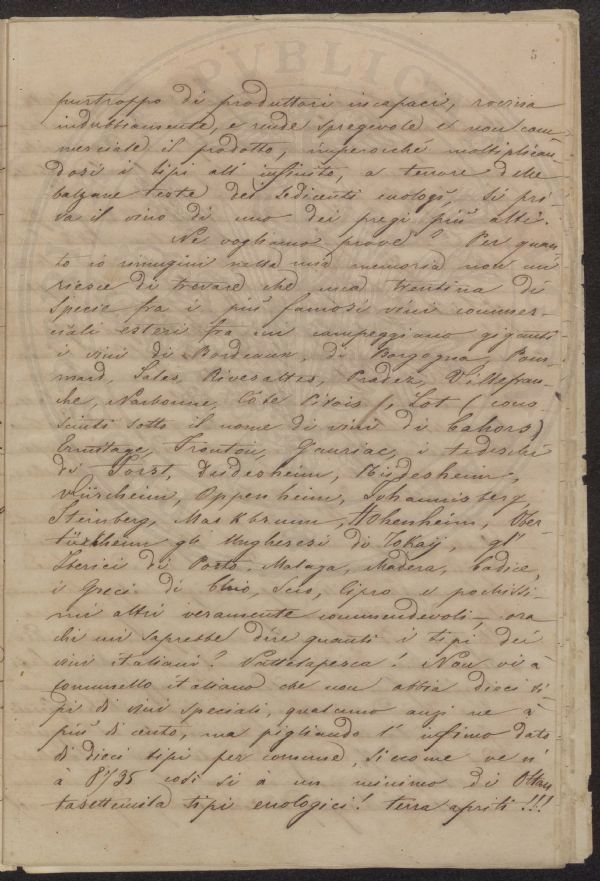 5
purtroppo di produttori incapaci, rovina
indubbiamente, e rende spregevole e non com-
merciale il prodotto, imperocchè moltiplican-
dosi i tipi all'infinito, a tenore delle
balzane teste dei sedicenti enologi, si pri-
va il vino di uno dei pregi più alti.
Ne vogliamo prove? Per quan-
to io rimugini nella mia memoria non mi
riesce di trovare che una trentina di
specie fra i più famosi vini commer-
ciali esteri fra cui campeggiano giganti
i vini di Bordeaux, di Borgogna, Pom-
mard, Sales, Rivesaltes, Pradez, Villefran-
che, Narbonne, Côte Pitois, Lot (cono-
sciuti sotto il nome di vini di Cahors)
Ermitage, Fronton, Gauriac, i tedeschi
di Forst, Deidesheim, Rüdesheim,
Dürcheim, Oppenheim, Johannisberg,
Steinberg, Markbrunn, Hohenheim, Ober-
türkheim gli Ungheresi di Tokay, gli
Iberici di Porto, Malaga, Madera, Cadice,
i Greci di Chio, Scio, Cipro e pochissi-
mi altri veramente commendevoli, ora
chi mi saprebbe dire quanti i tipi dei
vini italiani? Vattelapesca! Non vi à
comunello italiano che non abbia dieci ti-
pi di vini speciali, qualcuno anzi ne à
più di cento, ma pigliando l'infimo dato
di dieci tipi per comune, siccome ve n'
à 8735 così si à un minimo di Ottan-
tasettemila tipi enologici! terra apriti!!!